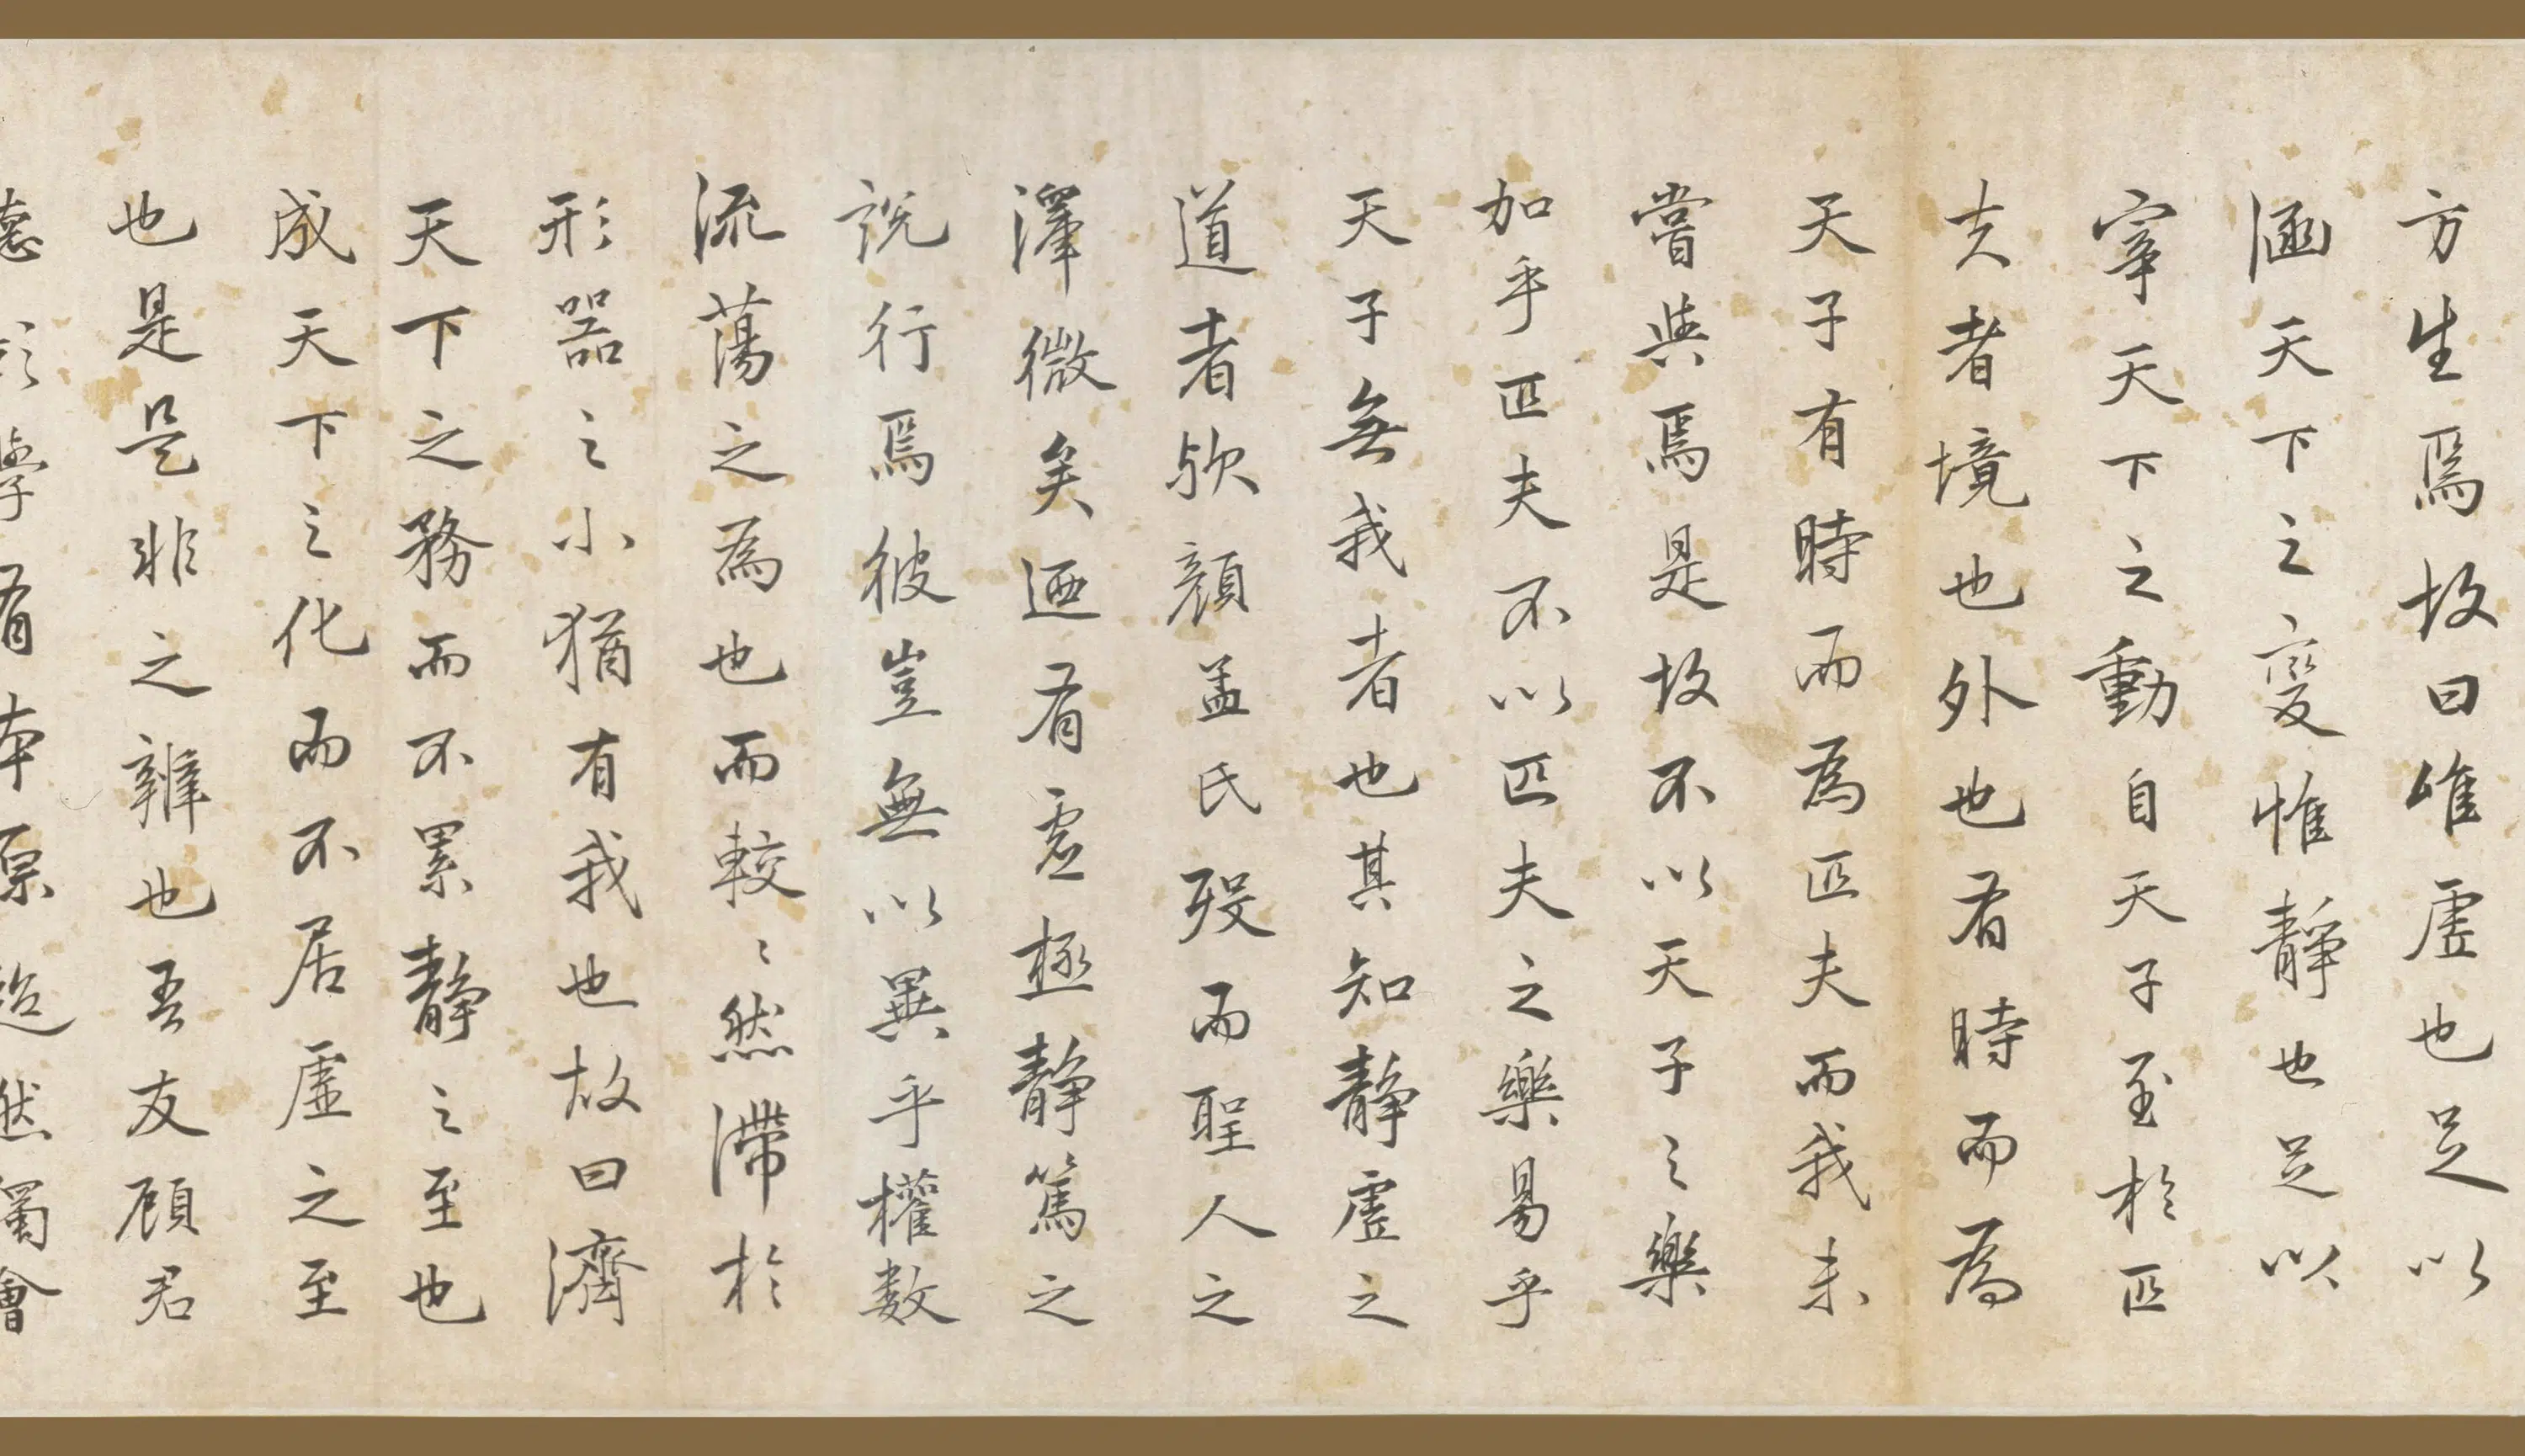 方生焉故曰唯虛也足以
涵天下之變惟靜也足以
宰天下之動自天子至於匹
夫者境也外也有時而為
天子有時而為匹夫而我未
嘗與焉是故不以天子之樂
加乎匹夫不以匹夫之樂易乎
天子無我者也其知靜虛之
道者欤顏孟氏歿而聖人之
澤微矣迺有虛極靜篤之
說行焉彼豈無以異乎權数
流蕩之為也而較〻然滯於
形器之小猶有我也故曰濟
天下之務而不累靜之至也
成天下之化而不居虛之至
也是是非之辨也吾友顧君
學有本原迨然獨會